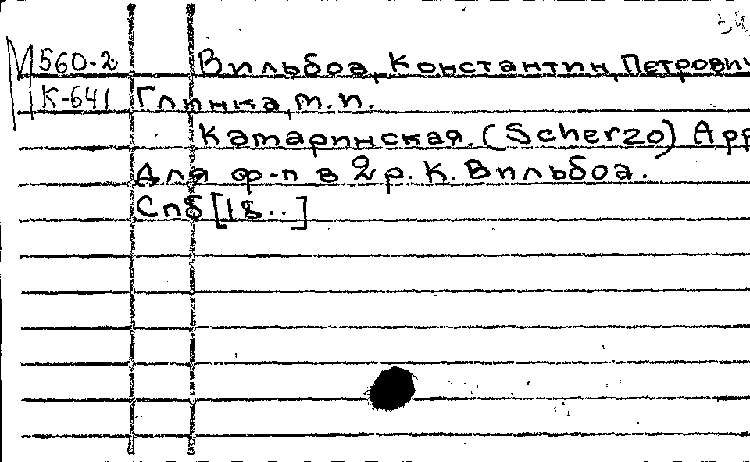 М 560-2 Вильбоа, Константин Петрович
К-641 Глинка, М.И.
Катаринская. (Scherzo) Арр
для ф-п в 2 р. К. Вильбоа.
Спб [18..]